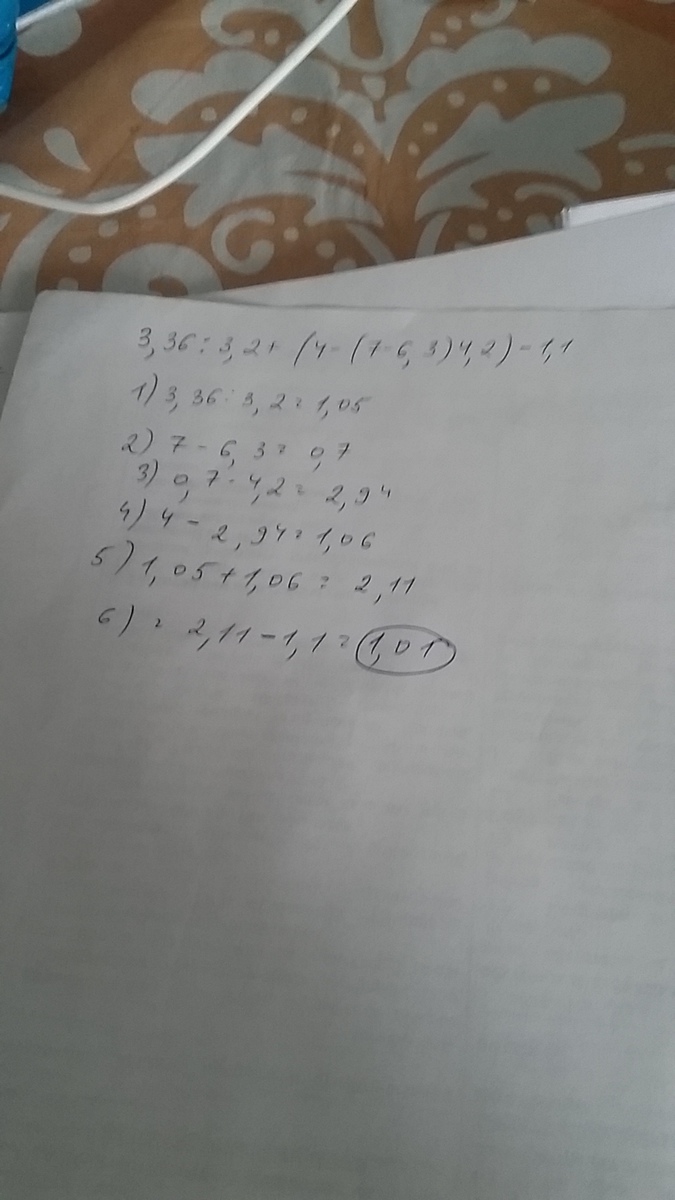 3,36 : 3,2 + (4 - (7 - 6,3) 4,2) - 1,1
1) 3,36 : 3,2 = 1,05
2) 7 - 6,3 = 0,7
3) 0,7 · 4,2 = 2,94
4) 4 - 2,94 = 1,06
5) 1,05 + 1,06 = 2,11
6) = 2,11 - 1,1 = 1,01